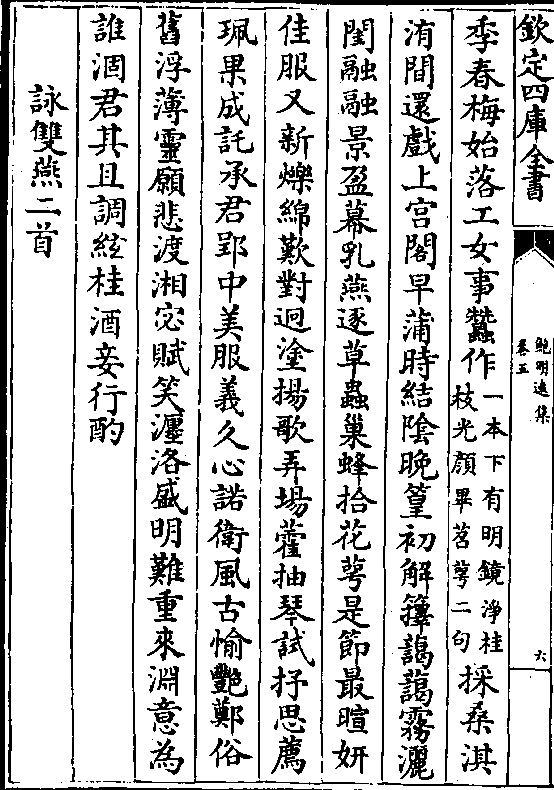 欽定四庫全書
鮑明遠集
卷五
六
季春梅始落工女事蠶作一本下有明鏡淨桂枝光顔畢苕蕚二句採桑淇
洧間還戲上宫閣早蒲時結隂晚篁初解籜藹藹霧灑
閨融融景盈幕乳燕逐草蟲巢蜂拾花蕚是節最暄妍
佳服又新爍綿歎對迥塗揚歌弄場藿抽琴試抒思薦
珮果成託承君郢中美服義久心諾衛風古愉豔鄭俗
舊浮薄靈願悲渡湘宓賦笑瀍洛盛明難重來淵意為
誰涸君其且調絃桂酒妾行酌
詠雙燕二首